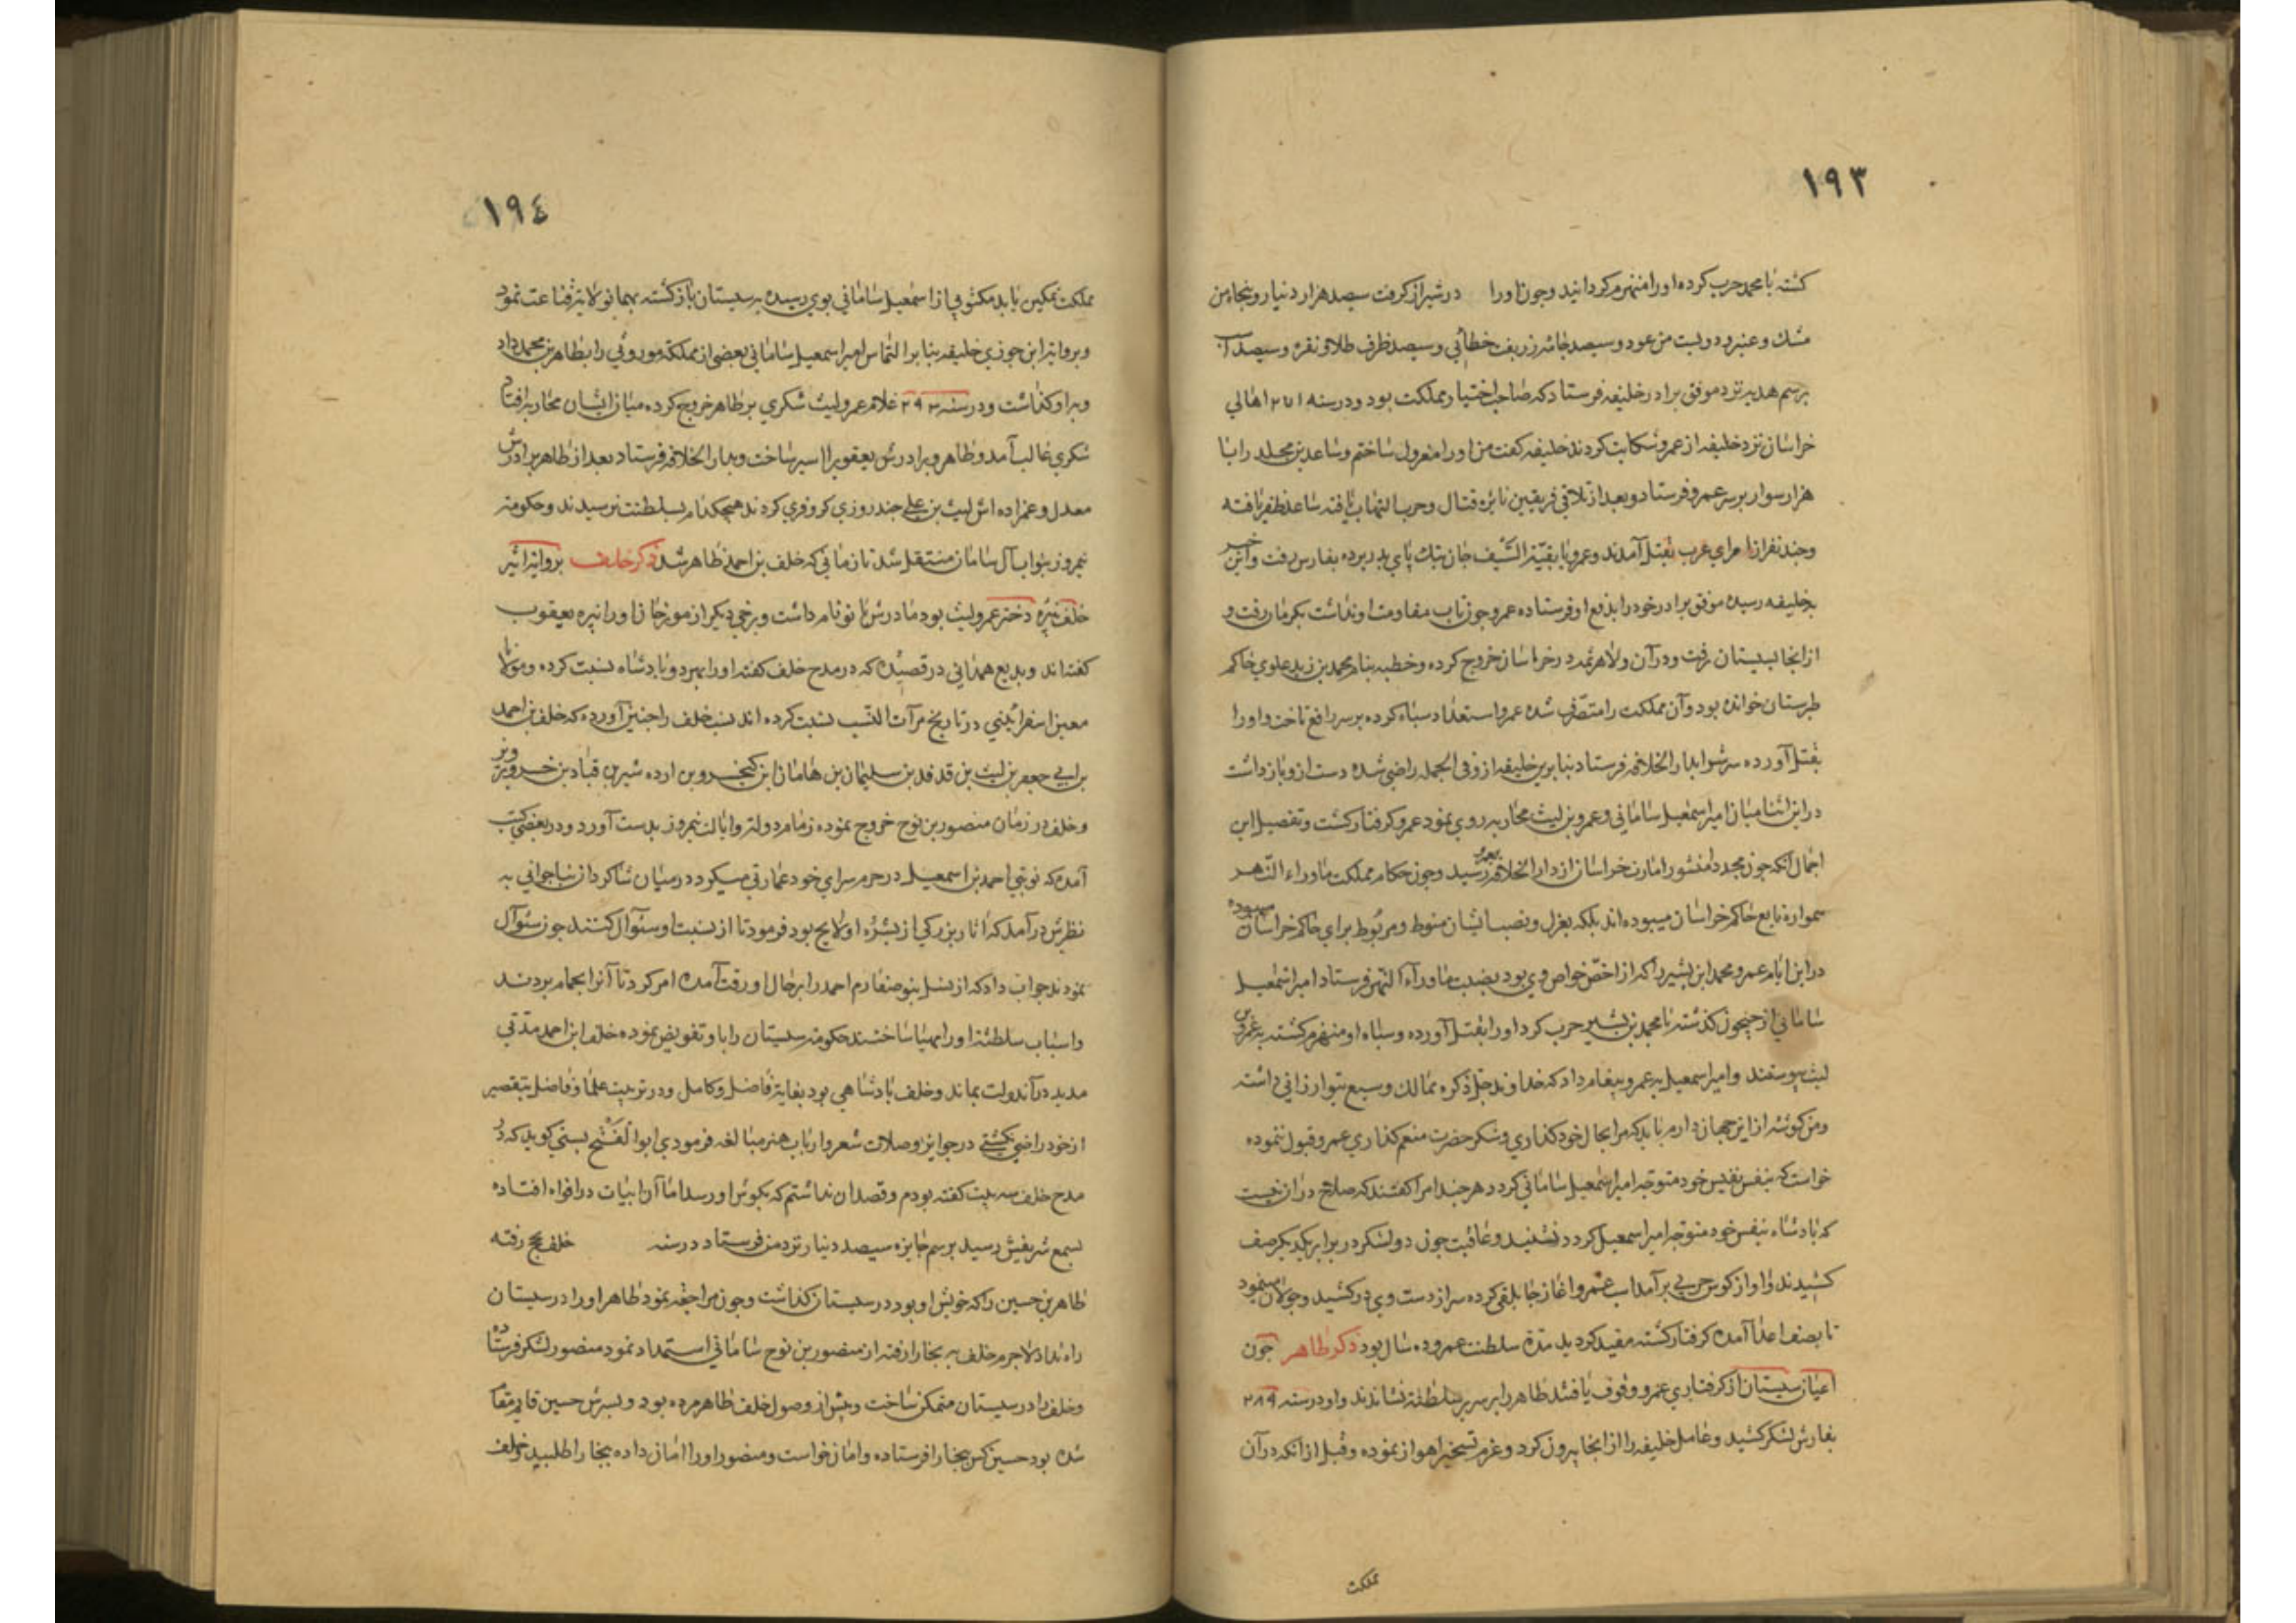 ١٩٣
کشته با محمد حرب کرده اورا منهزم کردانید وچون اورا درشیراز کرفت سیصد هزار دنیار وپنجاه من
مشك وعنبر ودویست من عود وسیصد جامه زربفت خطائی وسیصد ظرف طلا ونقره وسیصد
برسم هدیه نزد موفق برادر خلیفه فرستاد که صاحب اختیار مملکت بود ودرسنه ٢٧١ اهالي
خراسان نزد خلیفه از عمرو شکایت کردند خلیفه کفت من اورا معزول ساختم وساعد بن مجلد رابا
هزار سوار برسر عمرو فرستاد وبعد از تلاقي فریقین نایره قتال وحرب التهاب یافته ساعد ظفر یافته
وچند نفر از امرای عرب بقتل آمدند وعمرو با بقیة السیف جان بتك پاي بدر برده بفارس رفت واین خبر
بخلیفه رسیده موفق برادر خودرا بدفع او فرستاده عمرو چون تاب مقاومت او نداشت بکرمان رفت و
از انجا بسیستان رفت ودرآن ولا هرثمه درخراسان خروج کرده وخطبه بنام محمد بن زید علوي حاکم
طبرستان خوانده بود وآن مملکت را متصرف شده عمرو استعداد سپاه کرده برسر رافع تاخت واورا
بقتل آورده سرشرا بدار الخلافه فرستاد بنا برین خلیفه ازو في الجمله راضي شده دست ازو بازداشت
دراین اثنا میان امیر اسمعیل ساماني وعمرو بن لیث محاربه روي نمود عمرو کرفتار کشت وتفصیل این
اجمال آنکه چون مجددا منشور امارت خراسان از دار الخلافه بعمرو رسید وچون حکام مملکت ماوراء النهر
همواره تابع حاکم خراسان میبوده اند بلکه بعزل ونصب ایشان منوط ومربوط براي حاکم خراسان میبوده
دراین ایام عمرو محمد ابن بشیر راکه از اخص خواص وي بود بضبط ماوراء النهر فرستاد امیر اسمعیل
ساماني از جیحون کذشته با محمد بن بشیر حرب کرد اورا بقتل آورده وسپاه او منهزم کشته به عمرو بن
لیث پیوستند وامیر اسمعیل به عمرو پیغام داد که خداوند جل ذکره ممالك وسیع بتو ارزاني داشته
ومن کوشه از این جهان دارم باید که مرا بحال خود کذاري وشکر حضرت منعم کذاري عمرو قبول ننموده
خواست که بنفس نفیس خود متوجه امیر اسمعیل ساماني کردد هرچند امرا کفتند که صلاح دران نیست
که پادشاه بنفس خود متوجه امیر اسمعیل کردد نشنید وعاقبت چون دو لشکر در برابر یکدیکر صف
کشیدند واواز کوس حربي برآمد اسب عمرو اغاز جابلقي کرده سر از دست وي درکشید وجولان مینمود
تا بصف اعدا آمده کرفتار کشته مقید کردید مدة سلطنت عمرو ده سال بود ذکر طاهر چون
اعیان سیستان از کرفتاري عمرو وقوف یافتند طاهر را بر سریر سلطنت نشاندند واو درسنه ٢٨٩
بفارس لشکر کشید وعامل خلیفه را از انجا بیرون کرد وعزم تسخیر اهواز نموده وقبل از انکه درآن
مملکت
١٩٤
مملکت تمکین یابد مکتوبي از اسمعیل ساماني بوي رسیده به سیستان بازکشته بهمان ولایت قناعت نمود
وبروایة ابن جوزي خلیفه بنا بر التماس امیر اسمعیل ساماني بعضي از مملکت موروثي را بطاهر بن محمد داد
وبراو کذاشت ودرسنه ٢٩٣ غلام عمرو لیث شکري برطاهر خروج کرده میان ایشان محاربه افتاد
شکري غالب آمد وطاهر وبرادرش یعقوب را اسیر ساخت وبدار الخلافه فرستاد بعد از طاهر برادرش
معدل وعمزاده اش لیث بن علي چند روزي کروفري کردند هیچکدام بسلطنت نرسیدند وحکومت
نیمروز بنواب آل سامان منتقل شد تا زماني که خلف بن احمد ظاهر شد ذکر خلف بروایة اثیر
خلف نبیره دختر عمرو لیث بود مادرش بانو نام داشت وبرخي دیکر از مورخان اورا نبیره یعقوب
کفته اند وبدیع همداني درقصیده که درمدح خلف کفته اورا بهر دو پادشاه نسبت کرده ومولانا
معین اسفرائیني درتاریخ مرآت النسب نسبت کرده اند نسب خلف را چنین آورده که خلف بن احمد
بن ابي جعفر بن لیث بن قدقد بن سلیمان بن هامان ابن کیخسرو بن ارده شیر بن قباد بن خسرو پرویز
وخلف در زمان منصور بن نوح خروج نموده زمام دولت وایالت نیمروز بدست آورد ودر بعضي کتب
آمده که نوبتي احمد بن اسمعیل درحرم سراي خود عمارتي میکرد درمیان شاکردان بنا جواني به
نظرش درآمد که اثار بزرکي از بشره او لایح بود فرمود تا از نسبت او سئوال کنند چون سئوال
نمودند جواب داد که از نسل بنو صفارم احمد را برحال او رقت آمده امر کرد تا آنرا بحمام بردند
واسباب سلطنت اورا مهیا ساختند حکومت سیستان رابا وتفویض نموده خلف ابن احمد مدتي
مدید درآن دولت بماند وخلف پادشاهي بود بغایة فاضل وکامل ودر تربیت علما وفاضل بتقصیر
از خود راضي نکشتي درجوایز وصلات شعر وارباب هنر مبالغه فرمودي ابوا الفتح بستي کوید که در
مدح خلف سه بیت کفته بودم وقصدان نداشتم که بکوش او رسد اما آن ابیات درافواه افتاده
بسمع شریفش رسید برسم جایزه سیصد دنیار نزد من فرستاد درسنه خلف بحج رفته
طاهر بن حسین را که خویش او بود در سیستان کذاشت وچون مراجعه نمود طاهر اورا در سیستان
راه نداد لاجرم خلف به بخارا رفته از منصور بن نوح ساماني استمداد نمود منصور لشکر فرستاده
وخلف را در سیستان متمکن ساخت وپیش از وصول خلف طاهر مرده بود وپسرش حسین قایم مقام
شده بود حسین کس ببخارا فرستاده وامان خواست ومنصور اورا امان داده بخارا طلبید وخلف